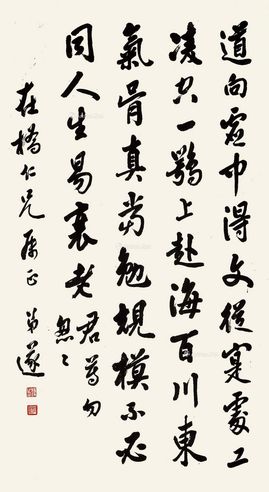 道向虛中得文從寔處工
凌空一鶚上赴海百川東
氣骨真當勉規模不必
同人生易衰老君等勿
怱〻
在橋仁兄屬正 弟邃